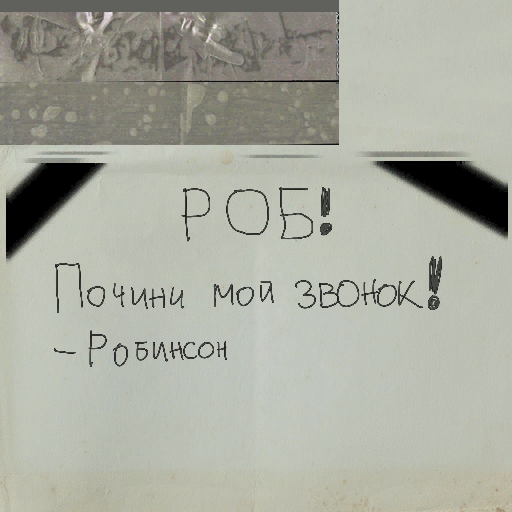 РОБ!
Почини мой звонок!
- Робинсон